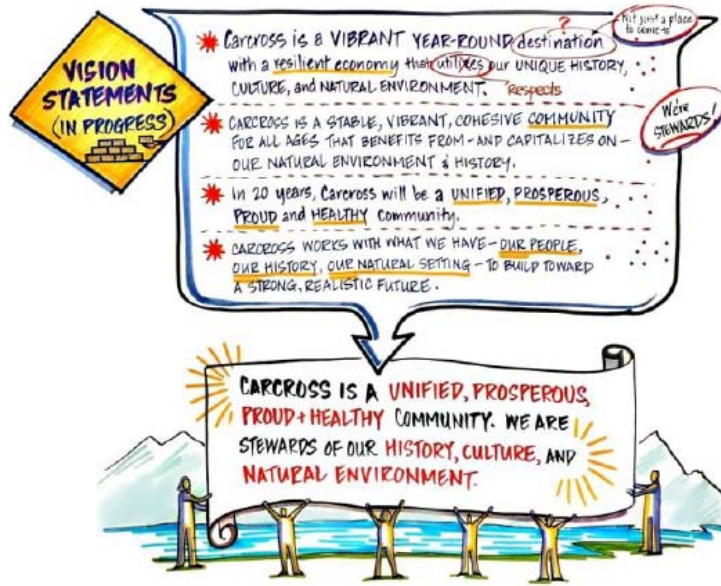 VISION
STATEMENTS
(IN PROGRESS)
?
Not just a place
to come to
Carcross is a VIBRANT YEAR-ROUND destination
with a resilient economy that utilizes our UNIQUE HISTORY,
CULTURE, and NATURAL ENVIRONMENT. Respects
We're
STEWARDS!
CARCROSS IS A STABLE, VIBRANT, COHESIVE COMMUNITY
FOR ALL AGES THAT BENEFITS FROM - AND CAPITALIZES ON -
OUR NATURAL ENVIRONMENT & HISTORY.
In 20 years, Carcross will be a UNIFIED, PROSPEROUS,
PROUD and HEALTHY Community.
CARCROSS WORKS WITH WHAT WE HAVE - OUR PEOPLE,
OUR HISTORY, OUR NATURAL SETTING - TO BUILD TOWARD
A STRONG, REALISTIC FUTURE.
CARCROSS IS A UNIFIED, PROSPEROUS,
PROUD + HEALTHY COMMUNITY. WE ARE
STEWARDS OF OUR HISTORY, CULTURE, AND
NATURAL ENVIRONMENT.